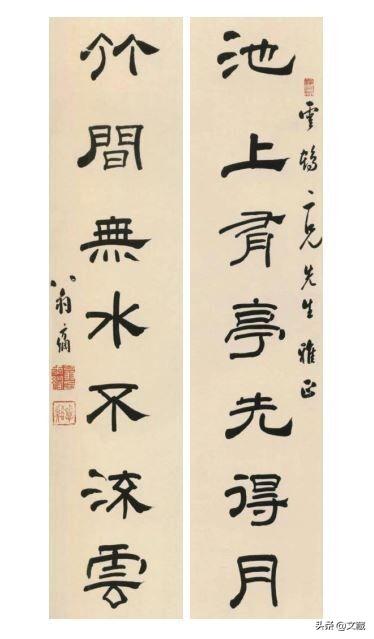 雲二兄先生雅正
池上有亭先得月
竹間無水不流雲
翁
头条 @文藏